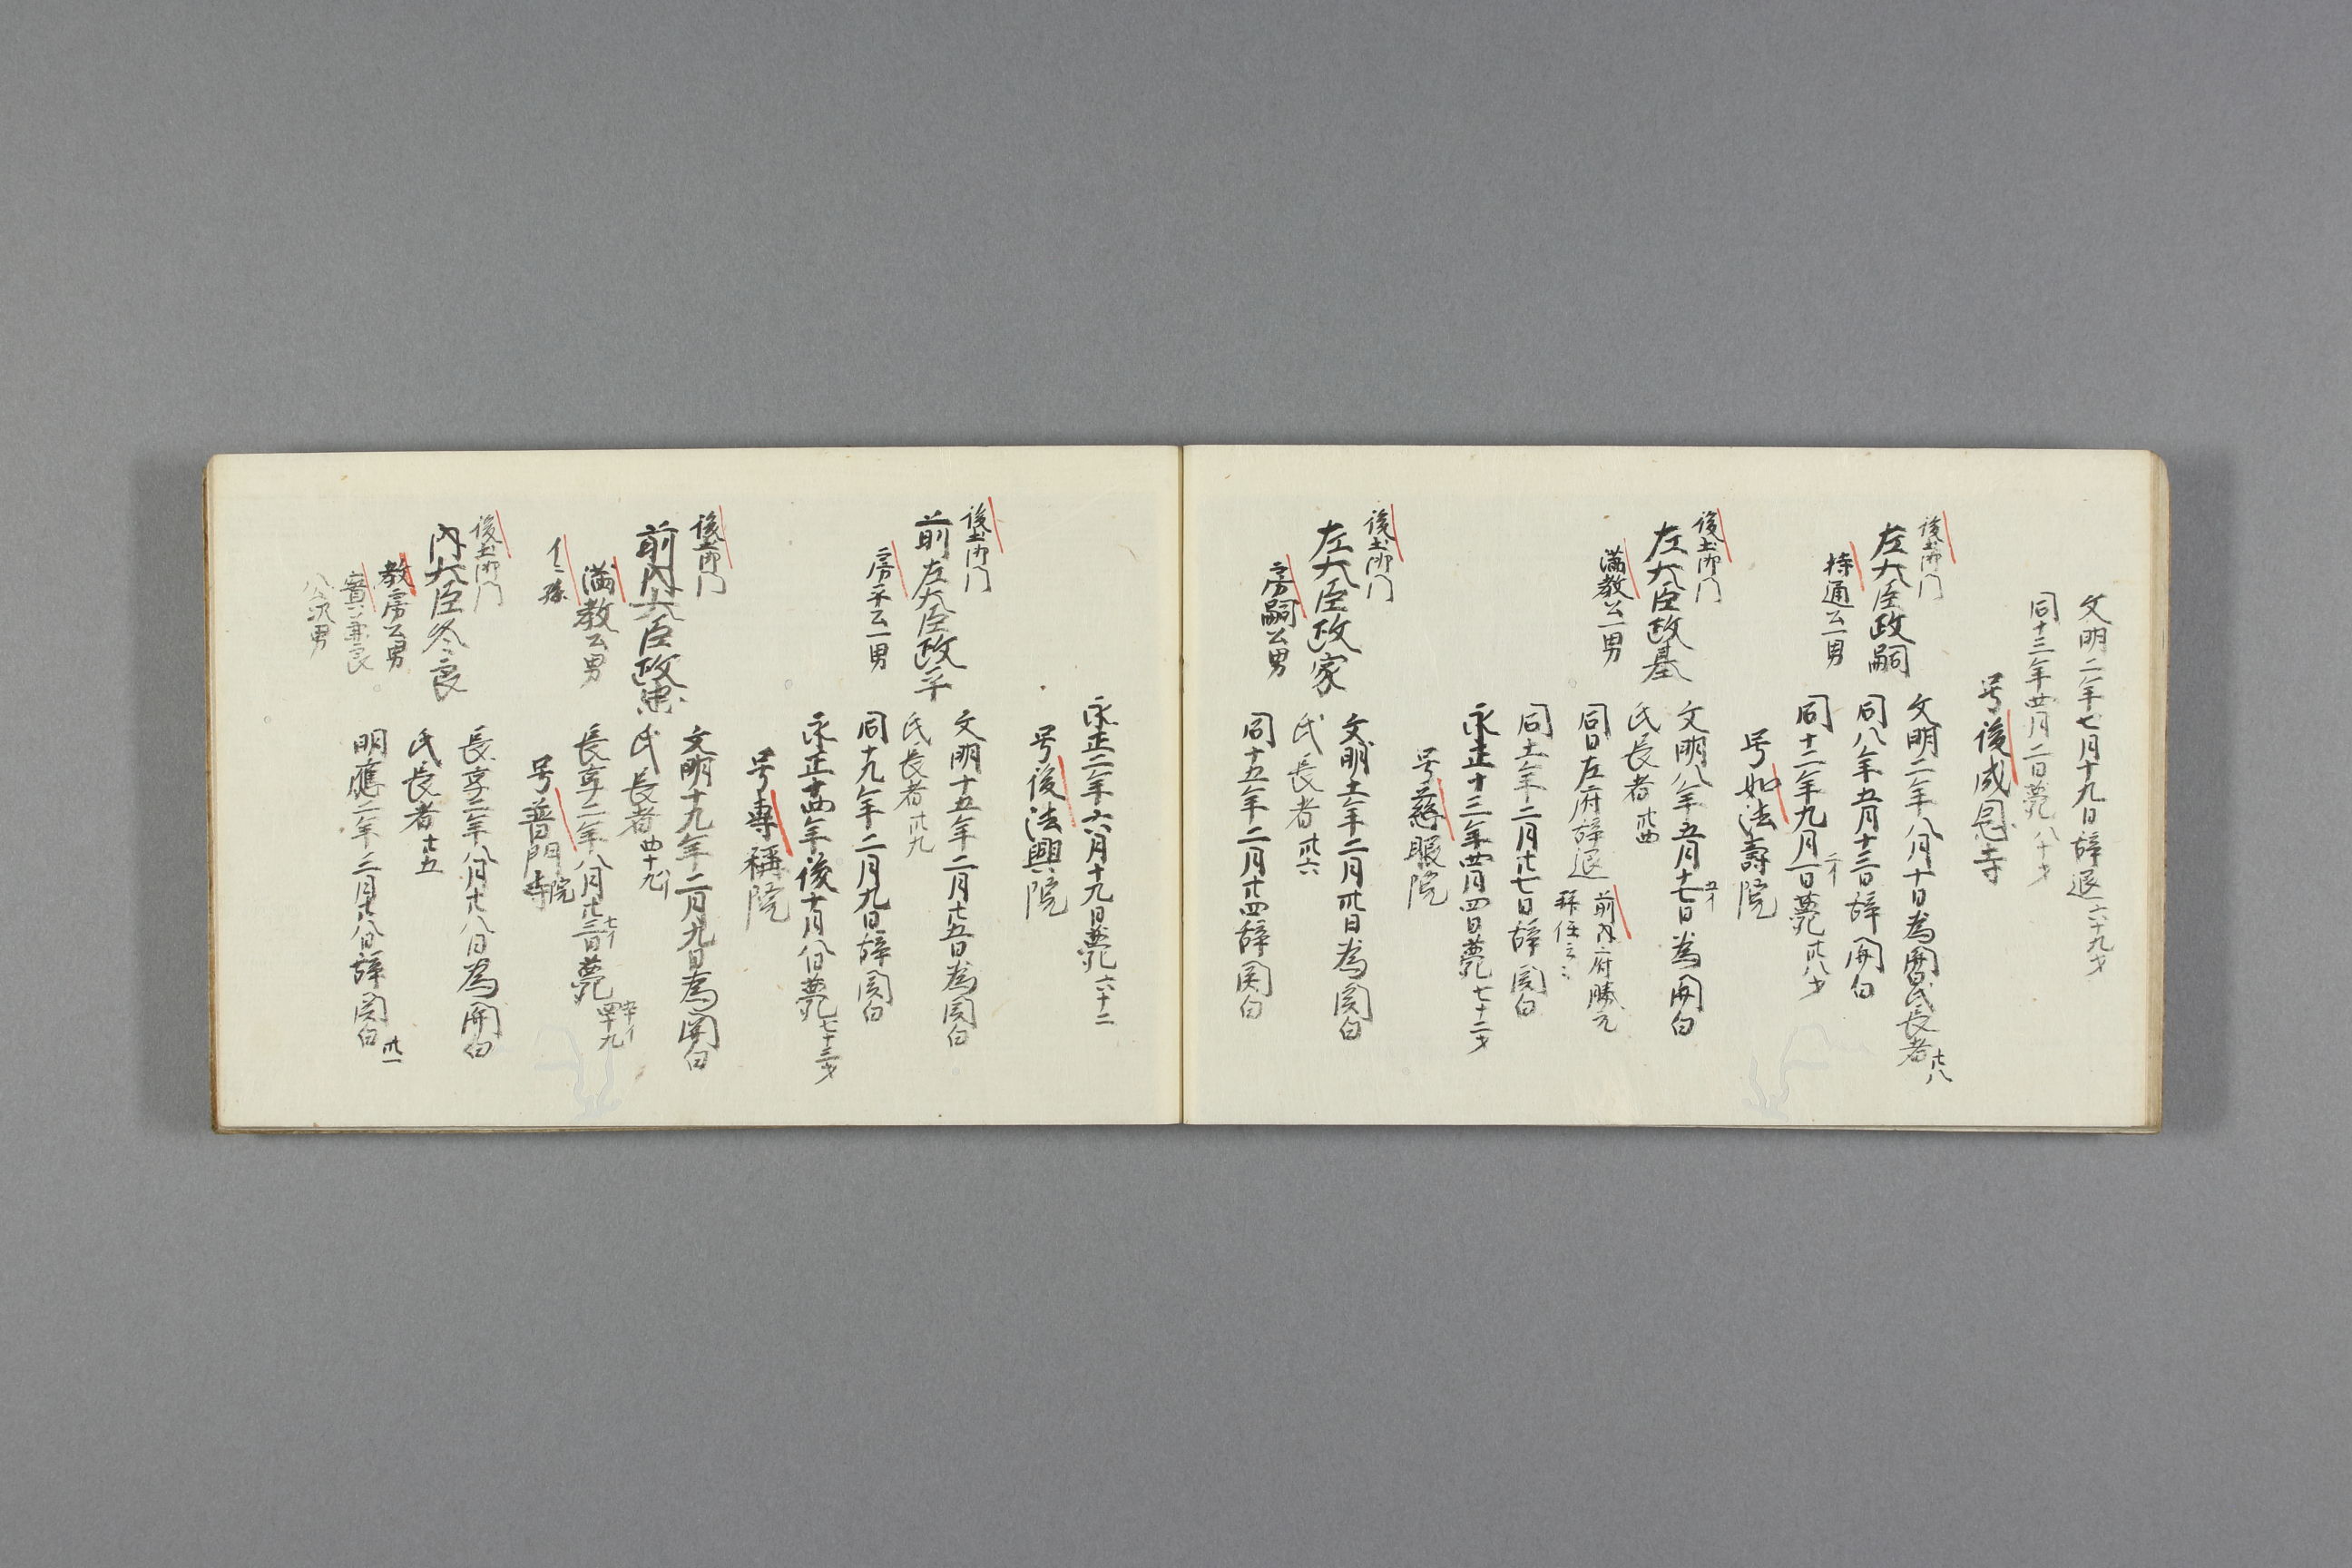 文明二年七月十九日辞退六十九才
同十三年四月二日薨八十才
号後成恩寺
後土御门
左大臣政嗣
持通公一男
文明二年八月十日為関白氏長者廿八
同八年五月十三日辞関白
同十二年九月一日薨卅八才
二イ
号如法壽院
後土御门
左大臣政基
満教公一男
文明八年五月十七日為関白
五イ
氏長者卅四
同日左府辞退
前内府勝光
拝任云々
同十一年二月廿七日辞関白
永正十三年四月四日薨七十二才
号慈眼院
後土御门
左大臣政家
房嗣公男
文明十一年二月卅日為関白
氏長者卅六
同十五年二月廿四辞関白
永正二年六月十九日薨六十二
号後法興院
後土御门
前左大臣政平
房平公一男
文明十五年二月廿五日為関白
氏長者卅九
同十九年二月九日辞関白
永正十四年後十月八日薨七十三才
号專稱院
後土御门
前内大臣政忠
満教公男
イニ孫
文明十九年二月九日為関白
氏長者四十九
長享二年八月廿三日薨
七イ
五十イ
四十九
号普門寺
院
後土御门
内大臣冬良
教房公男
實ハ兼良
公次男
長享二年八月廿八日為関白
氏長者廿五
明應二年三月廿八日辞関白
卅一